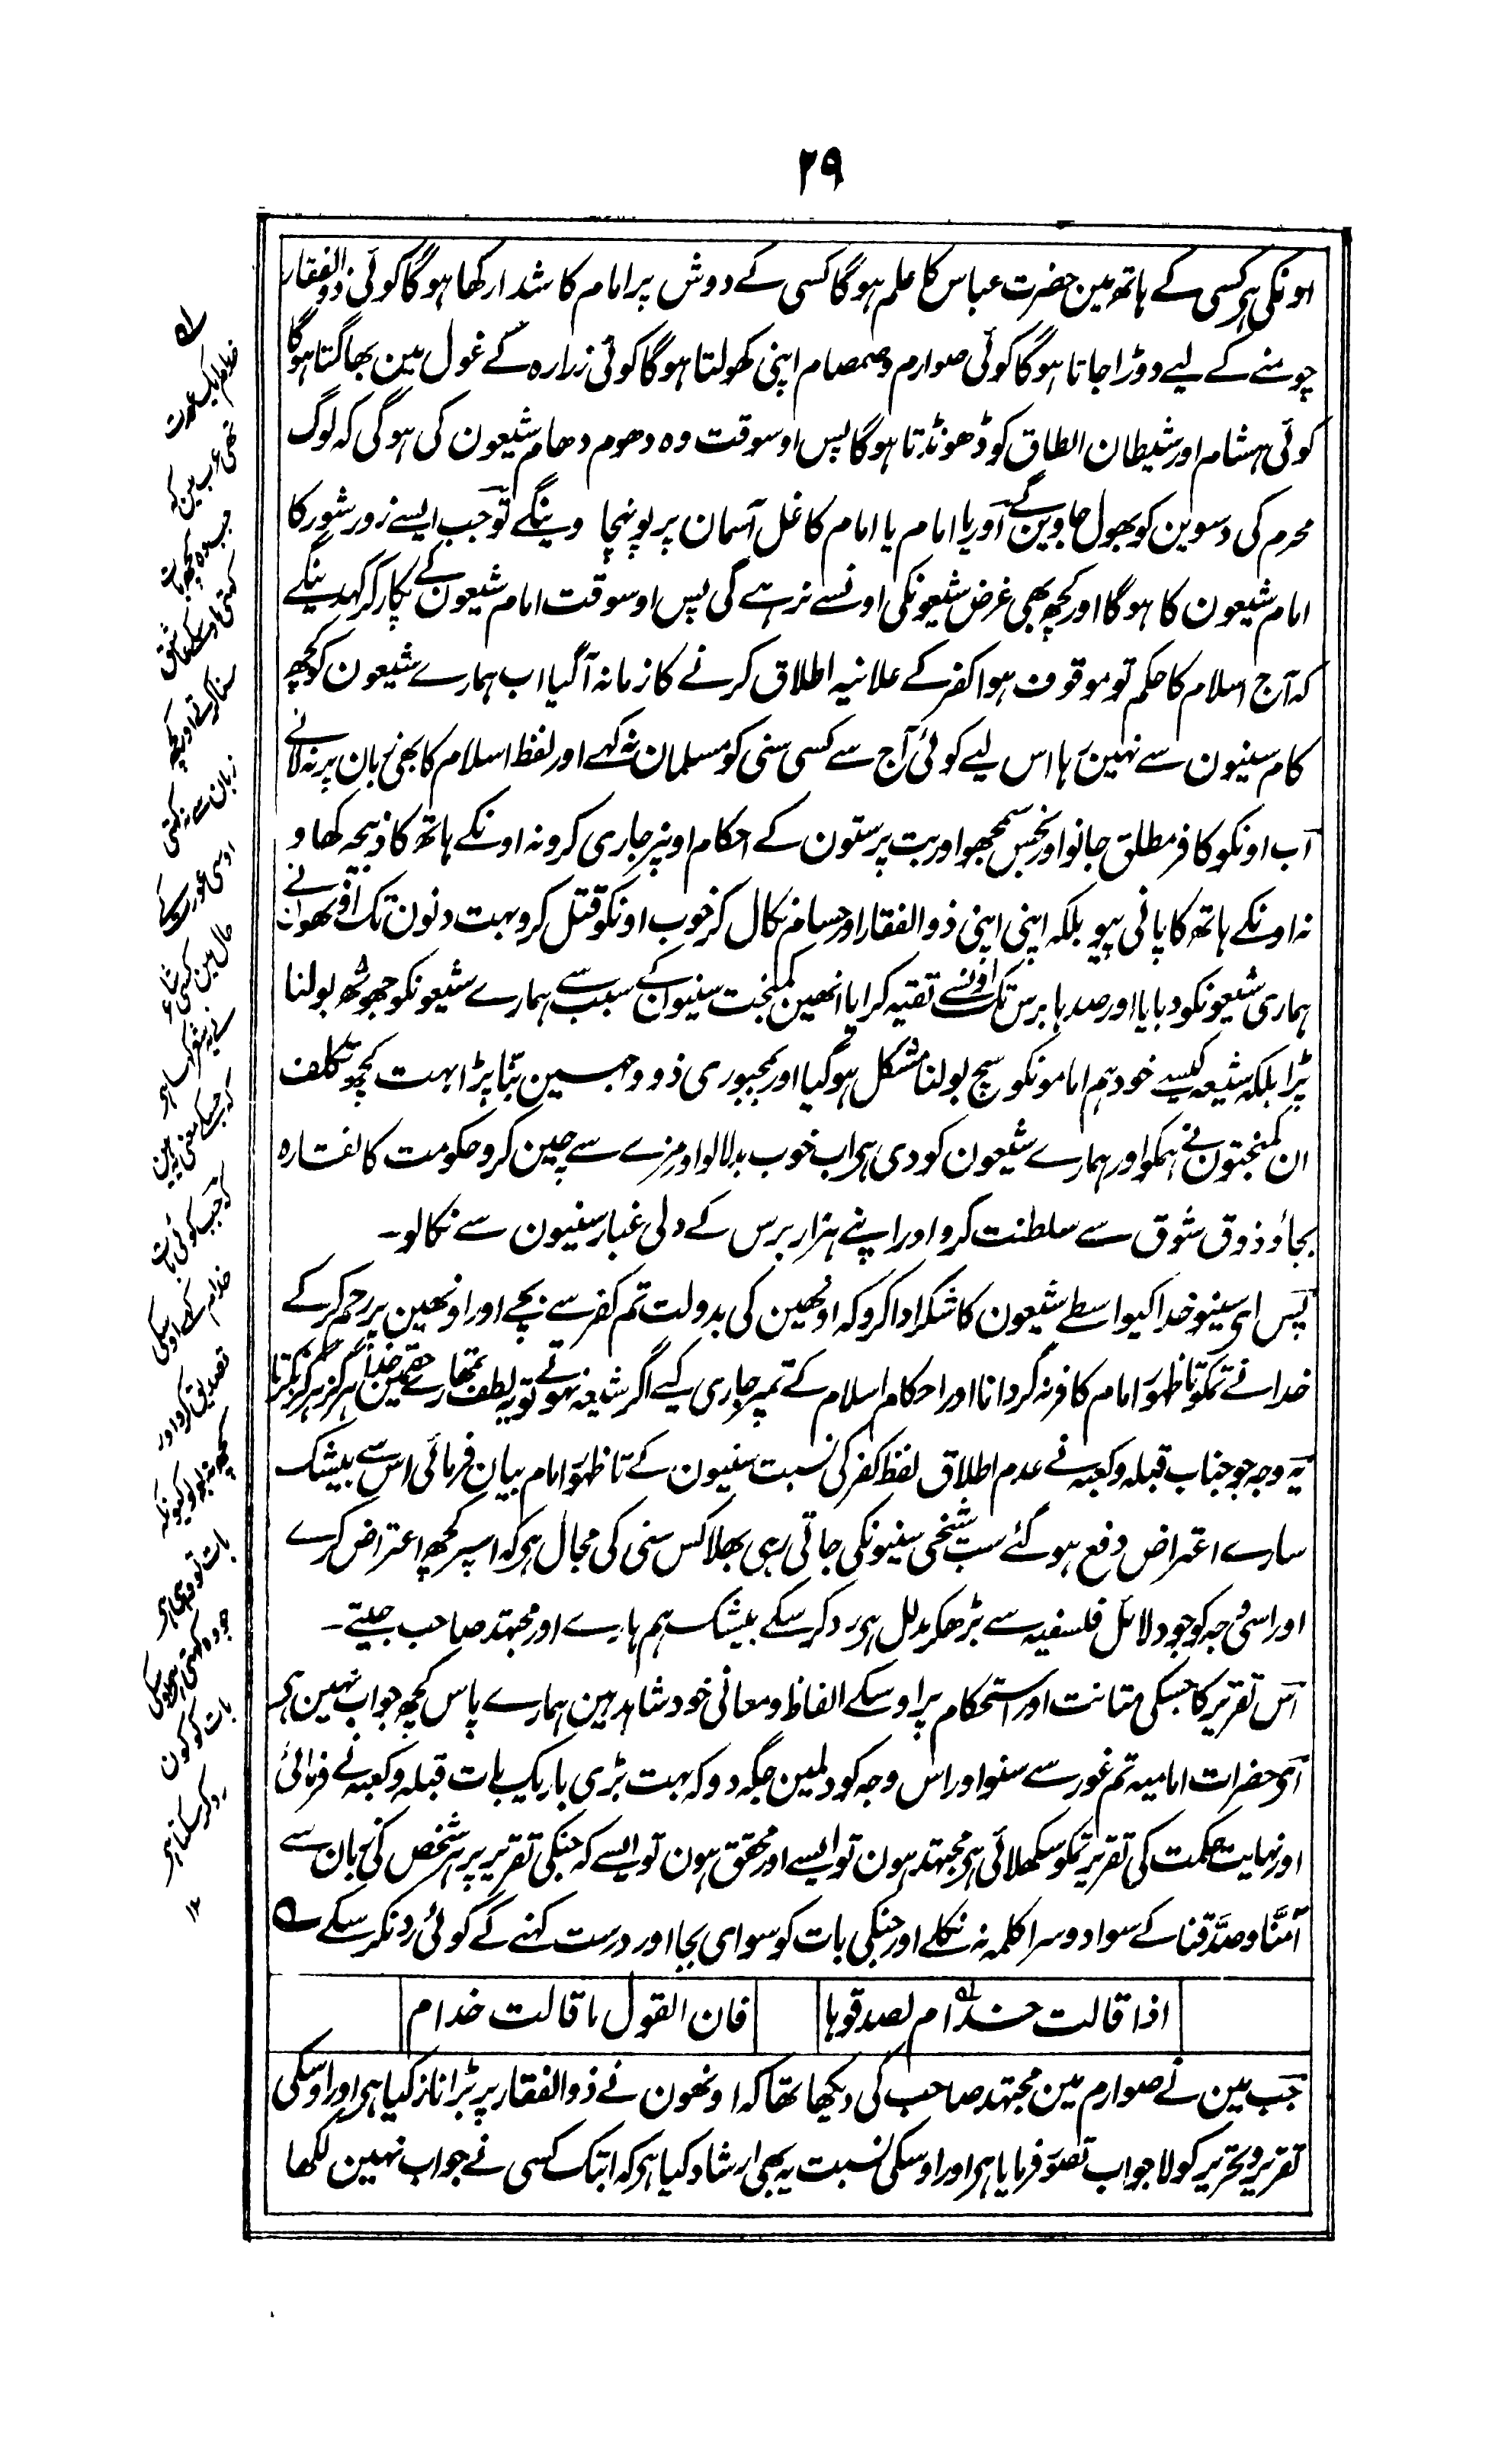 ۲۹
اونکی ہی کسی کے ہاتھ مین حضرت عباس کا علم ہوگا کسی کے دوش پر امام کا شدا رکھا ہوگا کوئی ذوالفقار
چومنے کے لیے دوڑا جاتا ہوگا کوئی صوارم و صمصام اپنی کھولتا ہوگا کوئی زرارہ کے غول مین بھاگتا ہوگا
کوئی ہشام اور شیطان الطاق کو ڈھونڈتا ہوگا پس اوسوقت وہ دھوم دھام شیعون کی ہوگی کہ لوگ
محرم کی دسوین کو بھول جاوین گے اور یا امام یا امام کا غل آسمان پر پونہچا وینگے تو جب ایسے زور شور کا
امام شیعون کا ہوگا اور کچھ بھی غرض شیعونکی اونسے نرہے گی پس اوسوقت امام شیعون کے پکار کر کہدینگے
کہ آج اسلام کا حکم تو موقوف ہوا کفر کے علانیہ اطلاق کرنے کا زمانہ آگیا اب ہمارے شیعون کو کچھ
کام سنیون سے نہین رہا اس لیے کوئی آج سے کسی سنی کو مسلمان نہ کہے اور لفظ اسلام کا بھی زبان پر نہ لانے
اب اونکو کافر مطلق جانو اور نجس سمجھو اور بت پرستون کے احکام اونپر جاری کرو نہ اونکے ہاتھ کا ذبیحہ کھاو
نہ اونکے ہاتھ کا پانی پیو بلکہ اپنی اپنی ذوالفقار اور حسام نکال کر خوب اونکو قتل کرو بہت دنون تک اونھون نے
ہماری شیعونکو دبایا اور صدہا برس تک اونسے تقیہ کرایا انھین کمبخت سنیوان کے سبب سے ہمارے شیعونکو جھوٹھ بولنا
پڑا بلکہ شیعہ کیسے خود ہم امامونکو سچ بولنا مشکل ہو گیا اور بمجبوری ذو وجہین بننا پڑا بہت کچھ تکلف
ان کمبختون نے ہمکو اور ہمارے شیعون کو دی ہی اب خوب بدلا لو اور مزے سے چین کرو حکومت کا نقارہ
بجاؤ ذوق شوق سے سلطنت کرو اور اپنے ہزار برس کے دلی غبار سنیون سے نکالو۔
پس ای سنیو خدا کیواسطے شیعون کا شکر ادا کرو کہ اونھین کی بدولت تم کفر سے بچے اور اونھین پر رحم کر کے
خدا نے تمکو تا ظہور امام کافر نہ گردانا اور احکام اسلام کے تمپر جاری کیے اگر شیعہ نہوتے تو یہ لطف تمھارے حقمین خدا ہرگز ہرگز نکرتا
یہ وجہ جو جناب قبلہ و کعبہ نے عدم اطلاق لفظ کفر کی نسبت سنیون کے تا ظہور امام بیان فرمائی اس سے بیشک
سارے اعتراض دفع ہو گئے سب شیخی سنیونکی جاتی رہی بھلا کس سنی کی مجال ہی کہ اسپر کچھ اعتراض کرے
اور اسی وجہ کو جو دلائل فلسفیہ سے بڑھکر مدلل ہی رد کر سکے بیشک ہم ہارے اور مجتہد صاحب جیتے۔
اس تقریر کا جسکی متانت اور استحکام پر اوسکے الفاظ و معانی خود شاہد ہین ہمارے پاس کچھ جواب نہین ہی
ای حضرات امامیہ تم غور سے سنو اور اس وجہ کو دلمین جگہ دو کہ بہت بڑی باریک بات قبلہ و کعبہ نے فرمائی
اور نہایت حکمت کی تقریر تمکو سکھلائی ہی مجتہد ہون تو ایسے اور محقق ہون تو ایسے کہ جنکی تقریر پر ہر شخص کی زبان سے
آمنّا و صدّقنا کے سوا دوسرا کلمہ نہ نکلے اور جنکی بات کو سوای بجا اور درست کہنے کے کوئی رد نکر سکے ہ
اذا قالت حذام لصدقوہا فان القول ما قالت خدام
جب مین نے صوارم مین مجتہد صاحب کی دیکھا تھا کہ اونھون نے ذوالفقار پر بڑا ناز کیا ہی اور اوسکی
تقریر و تحریر کو لاجواب تصور فرمایا ہی اور اوسکی نسبت یہ بھی ارشاد کیا ہی کہ ابتک کسی نے جواب نہین لکھا
لہ
خدام ایک عورت
تھی عرب مین کہ
جب وہ کچھ بات
کہتی اوسکے عاشق
سنا کرتے اور کچھ
زبان سے نہ کہتی
اوسی عورت کے
حال مین کسی شاعر
نے یہ شعر کہا ہی
کہ جسکے معنی یہ ہین
کہ جب کوئی بات
خدام کہے اوسکی
تصدیق کرو اور
کچھ نہ بولو کیونکہ
بات تو وہی ہی
جو وہ کہتی ہی اوسکی
بات کو کون
رد کر سکتا ہی
۱۲